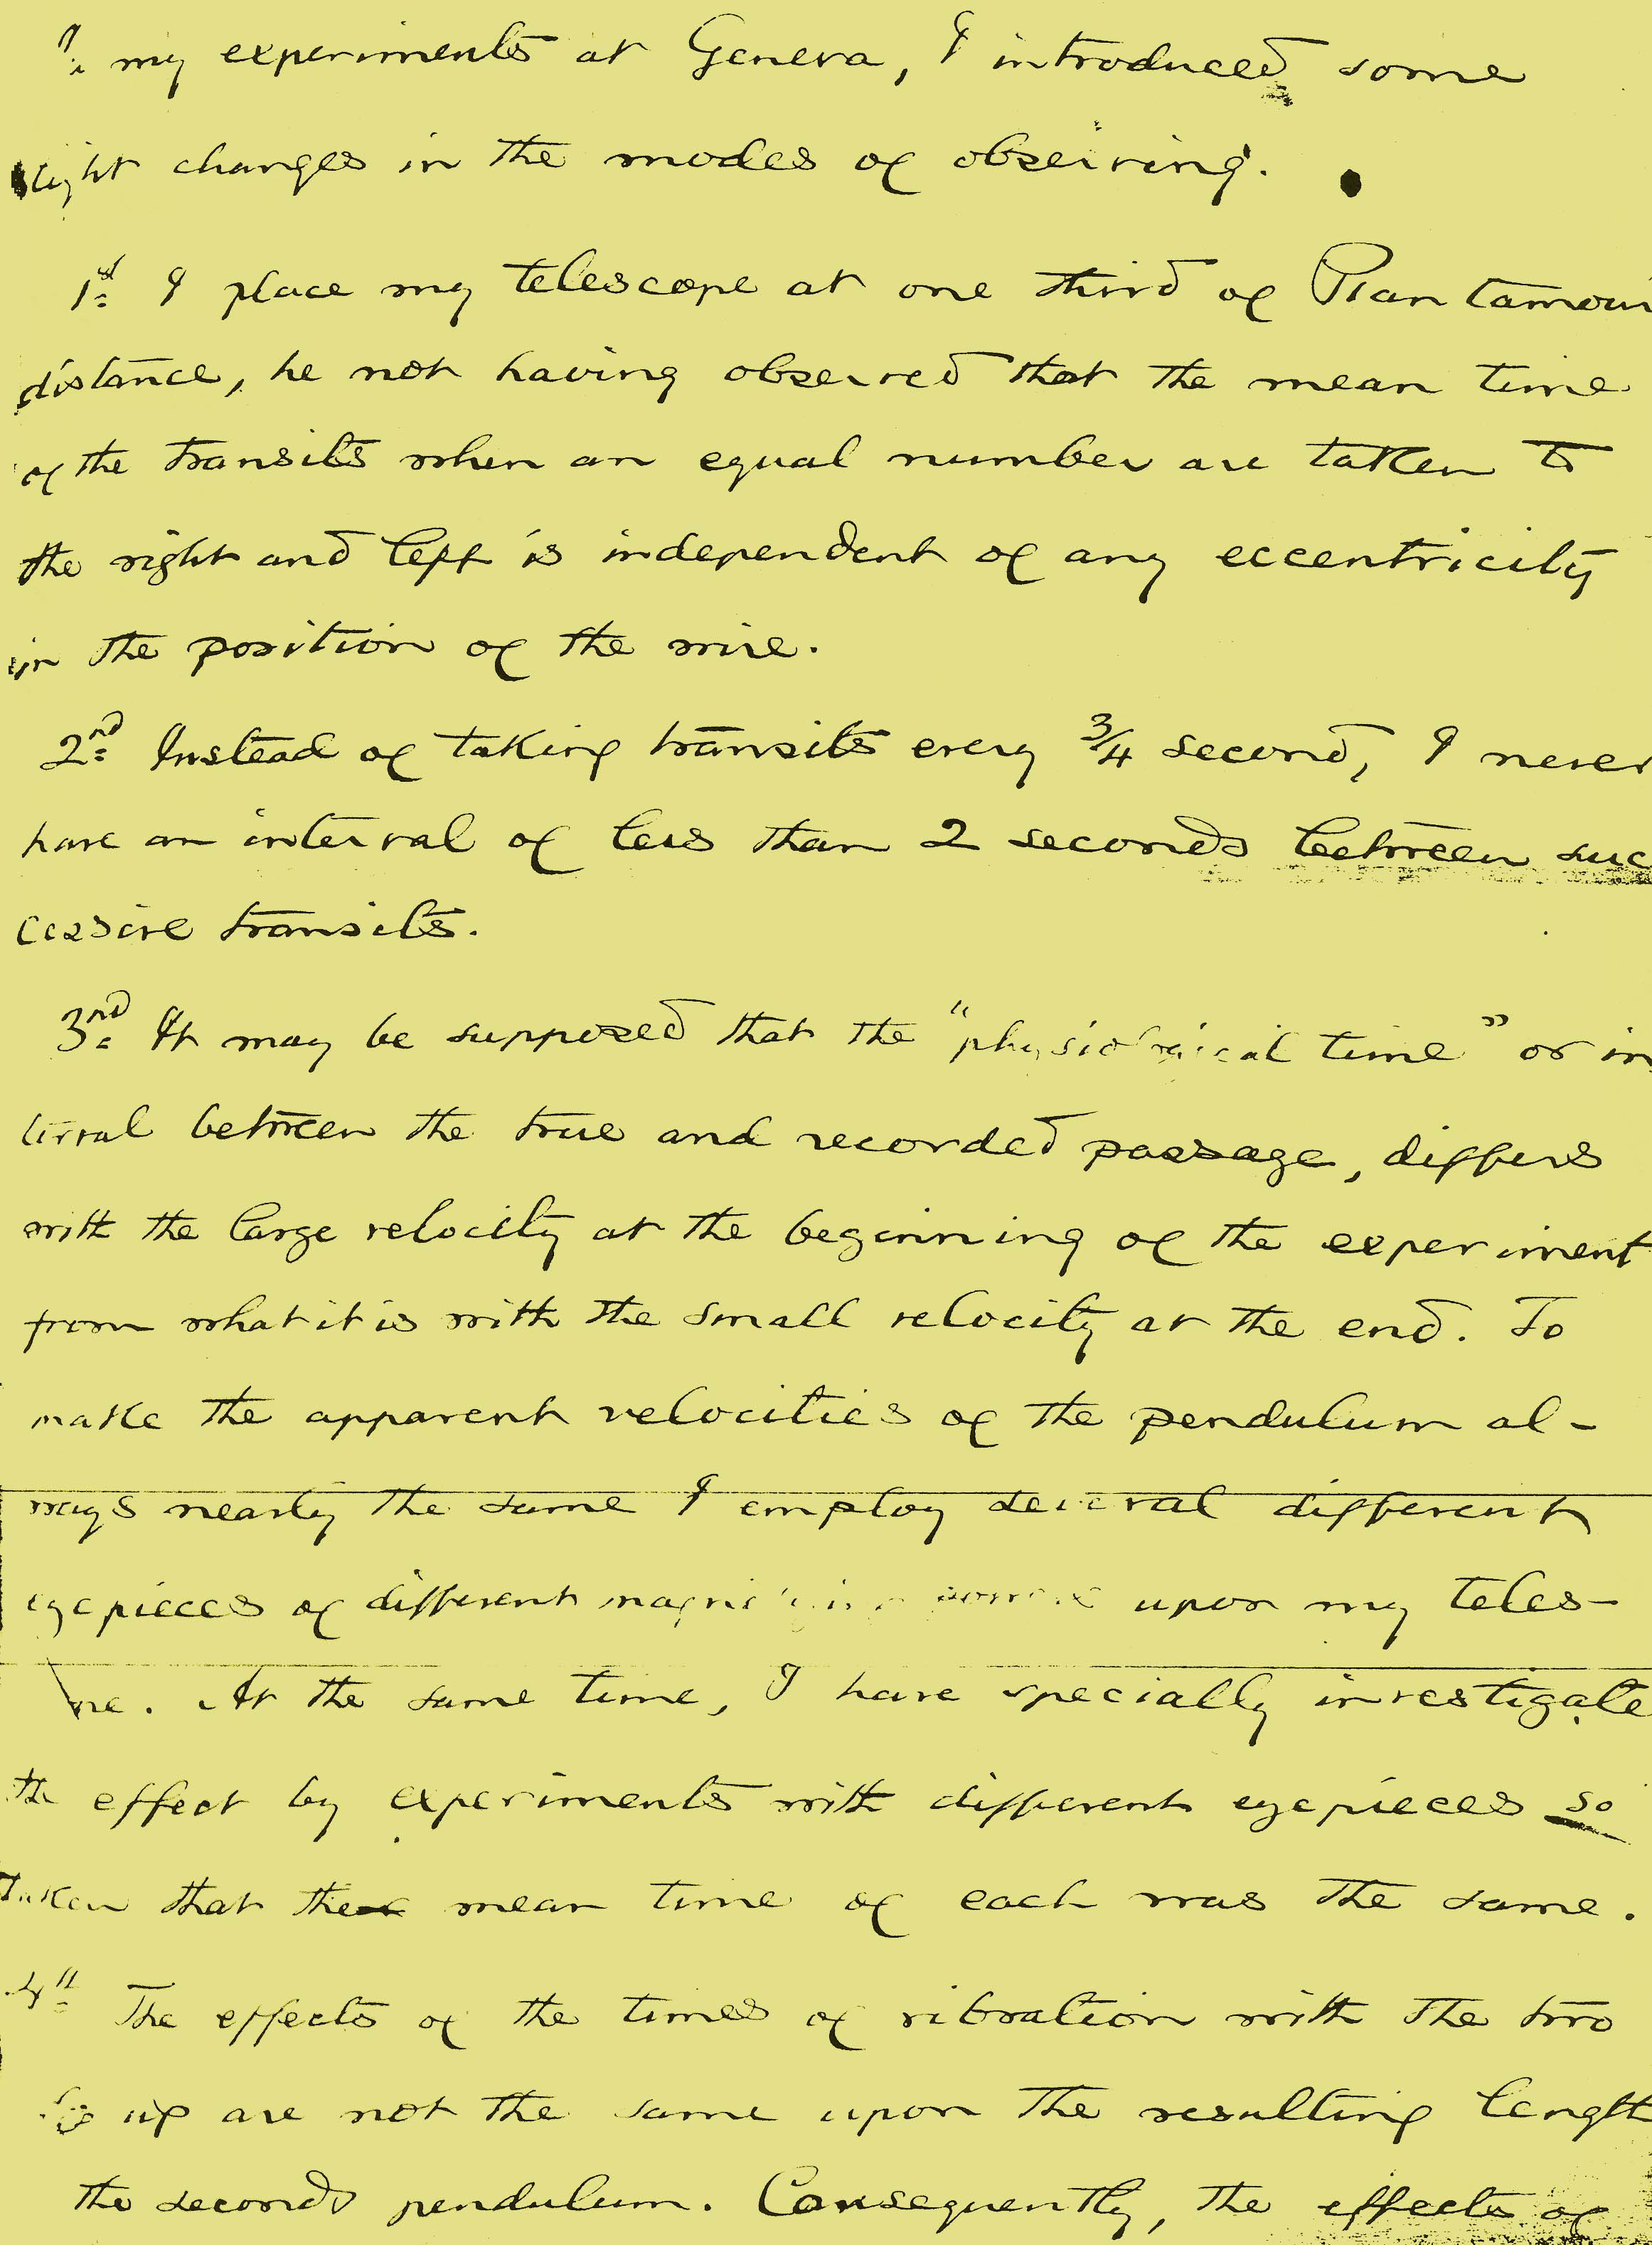 In my experiments at Geneva, I introduced some
slight changes in the modes of observing.
1st I place my telescope at one third of Plantamour
distance, he not having observed that the mean time
of the transits when an equal number are taken to
the right and left is independent of any eccentricity
in the position of the wire.
2nd Instead of taking transits every 3/4 second, I never
have an interval of less than 2 seconds between suc
cessive transits.
3rd It may be supposed that the "physiological time" or in
terval between the true and recorded passage, differs
with the large velocity at the beginning of the experiment
from what it is with the small velocity at the end. To
make the apparent velocities of the pendulum al-
ways nearly the same I employ several different
eyepieces of different magnifying powers upon my teles-
. At the same time, I have specially investigate
the effect by experiments with different eyepieces so
taken that the mean time of each was the same.
4th The effects of the times of vibration with the two
up are not the same upon the resulting length
the seconds pendulum. Consequently, the effects of